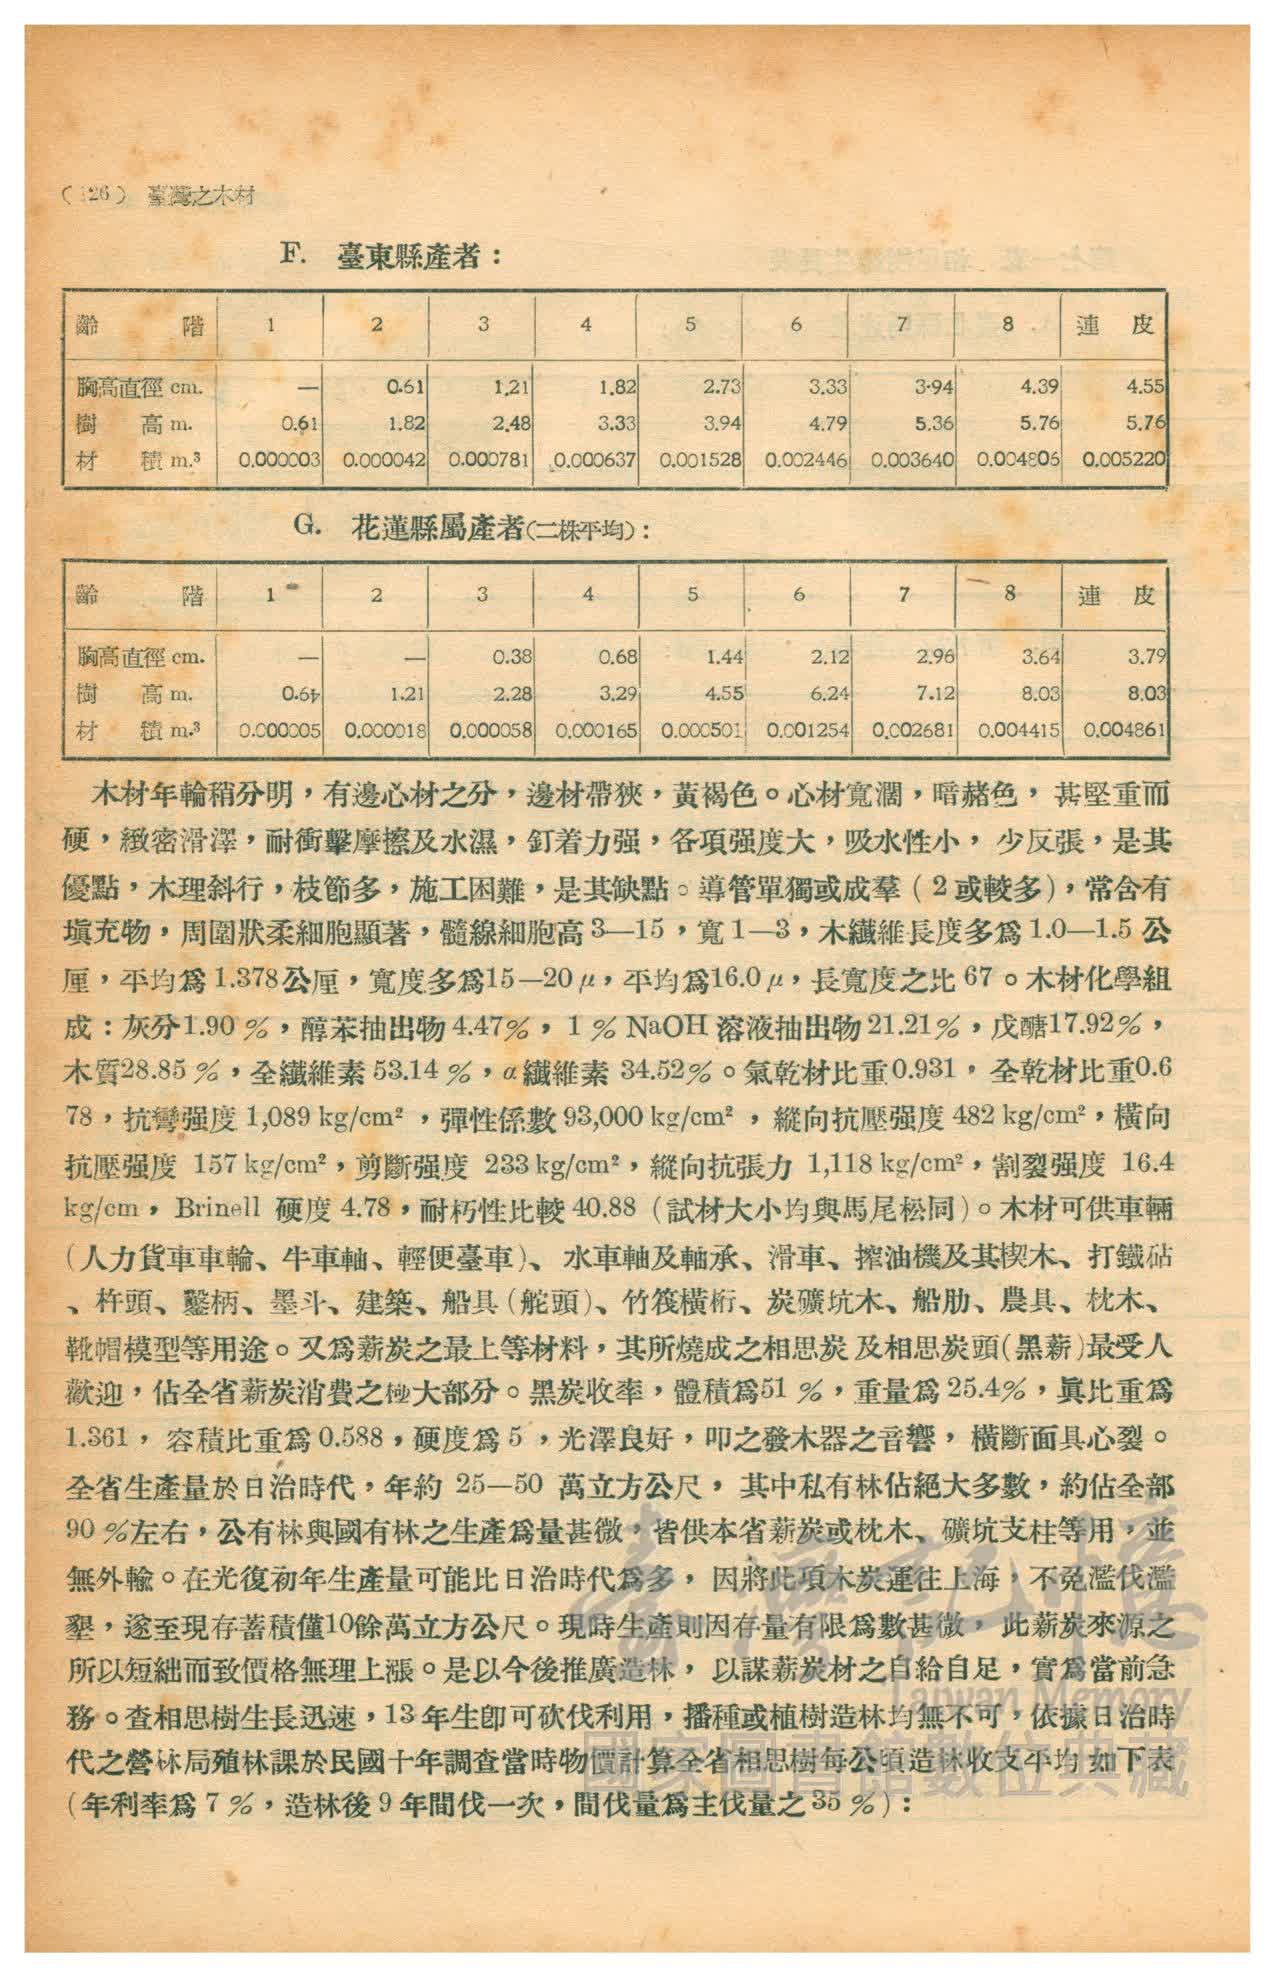 (126) 臺灣之木材
F. 臺東縣產者：
齡階 1 2 3 4 5 6 7 8 連皮
胸高直徑 cm. — 0.61 1.21 1.82 2.73 3.33 3.94 4.39 4.55
樹高 m. 0.61 1.82 2.48 3.33 3.94 4.79 5.36 5.76 5.76
材積 m.³ 0.000003 0.000042 0.000781 0.000637 0.001528 0.002446 0.003640 0.004806 0.005220
G. 花蓮縣屬產者(二株平均)：
齡階 1 2 3 4 5 6 7 8 連皮
胸高直徑 cm. — — 0.38 0.68 1.44 2.12 2.96 3.64 3.79
樹高 m. 0.64 1.21 2.28 3.29 4.55 6.24 7.12 8.03 8.03
材積 m.³ 0.000005 0.000018 0.000058 0.000165 0.000501 0.001254 0.002681 0.004415 0.004861
木材年輪稍分明，有邊心材之分，邊材帶狹，黃褐色。心材寬濶，暗赭色，甚堅重而
硬，緻密滑澤，耐衝擊摩擦及水濕，釘着力强，各項强度大，吸水性小，少反張，是其
優點，木理斜行，枝節多，施工困難，是其缺點。導管單獨或成羣（2或較多），常含有
塡充物，周圍狀柔細胞顯著，髓線細胞高3—15，寬1—3，木纖維長度多爲1.0—1.5公
厘，平均爲1.378公厘，寬度多爲15—20μ，平均爲16.0μ，長寬度之比67。木材化學組
成：灰分1.90％，醇苯抽出物4.47％，1％NaOH溶液抽出物21.21％，戊醣17.92％，
木質28.85％，全纖維素53.14％，α纖維素34.52％。氣乾材比重0.931，全乾材比重0.6
78，抗彎强度1,089 kg/cm²，彈性係數93,000 kg/cm²，縱向抗壓强度482 kg/cm²，橫向
抗壓强度 157 kg/cm²，剪斷强度 233 kg/cm²，縱向抗張力 1,118 kg/cm²，割裂强度 16.4
kg/cm，Brinell 硬度4.78，耐朽性比較40.88（試材大小均與馬尾松同）。木材可供車輛
(人力貨車車輪、牛車軸、輕便臺車)、水車軸及軸承、滑車、搾油機及其楔木、打鐵砧
、杵頭、鑿柄、墨斗、建築、船具(舵頭)、竹筏橫桁、炭礦坑木、船肋、農具、枕木、
靴帽模型等用途。又爲薪炭之最上等材料，其所燒成之相思炭及相思炭頭(黑薪)最受人
歡迎，佔全省薪炭消費之極大部分。黑炭收率，體積爲51％，重量爲25.4％，眞比重爲
1.361，容積比重爲0.588，硬度爲5，光澤良好，叩之發木器之音響，橫斷面具心裂。
全省生產量於日治時代，年約 25—50 萬立方公尺，其中私有林佔絕大多數，約佔全部
90％左右，公有林與國有林之生產爲量甚微，皆供本省薪炭或枕木、礦坑支柱等用，並
無外輸。在光復初年生產量可能比日治時代爲多，因將此項木炭運往上海，不免濫伐濫
墾，遂至現存蓄積僅10餘萬立方公尺。現時生產則因存量有限爲數甚微，此薪炭來源之
所以短絀而致價格無理上漲。是以今後推廣造林，以謀薪炭材之自給自足，實爲當前急
務。查相思樹生長迅速，13年生卽可砍伐利用，播種或植樹造林均無不可，依據日治時
代之營林局殖林課於民國十年調查當時物價計算全省相思樹每公頃造林收支平均如下表
(年利率爲7％，造林後9年間伐一次，間伐量爲主伐量之35％)：
臺灣記憶
Taiwan Memory
國家圖書館數位典藏